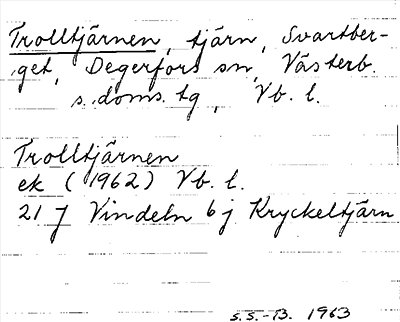 Trolltjärnen, tjärn, Svartber-
get, Degerfors sn, Västerb.
s. doms. tg, Vb. l.
Trolltjärnen
ek (1962) Vb. l.
21 J Vindeln 6 j Kryckeltjärn
S.S.-B. 1963